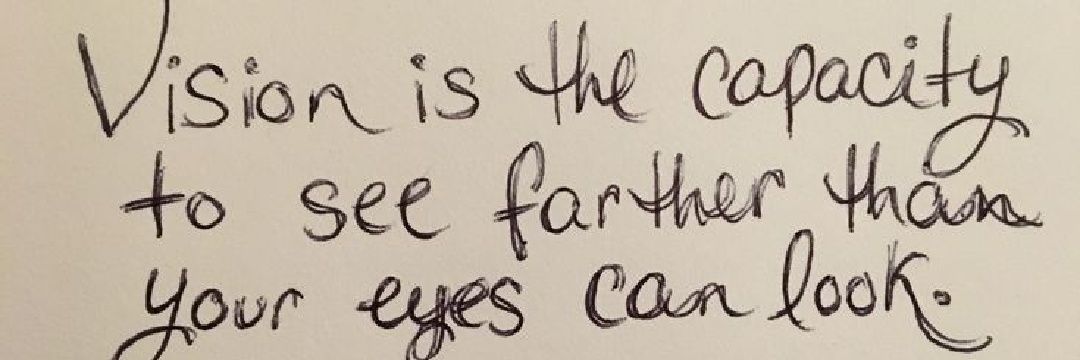 Vision is the capacity
to see farther than
your eyes can look.